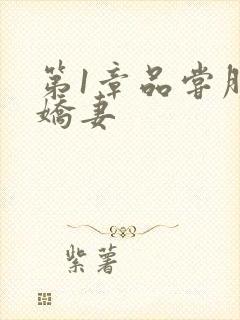 第1章品尝
娇妻
紫薯